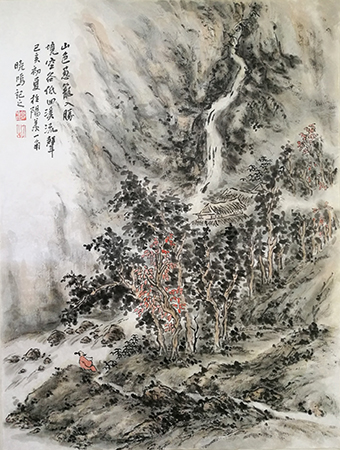 山色蔥蘢入勝
境空谷低回溪流聲
己亥初夏於陽羨一
曉鴻記之